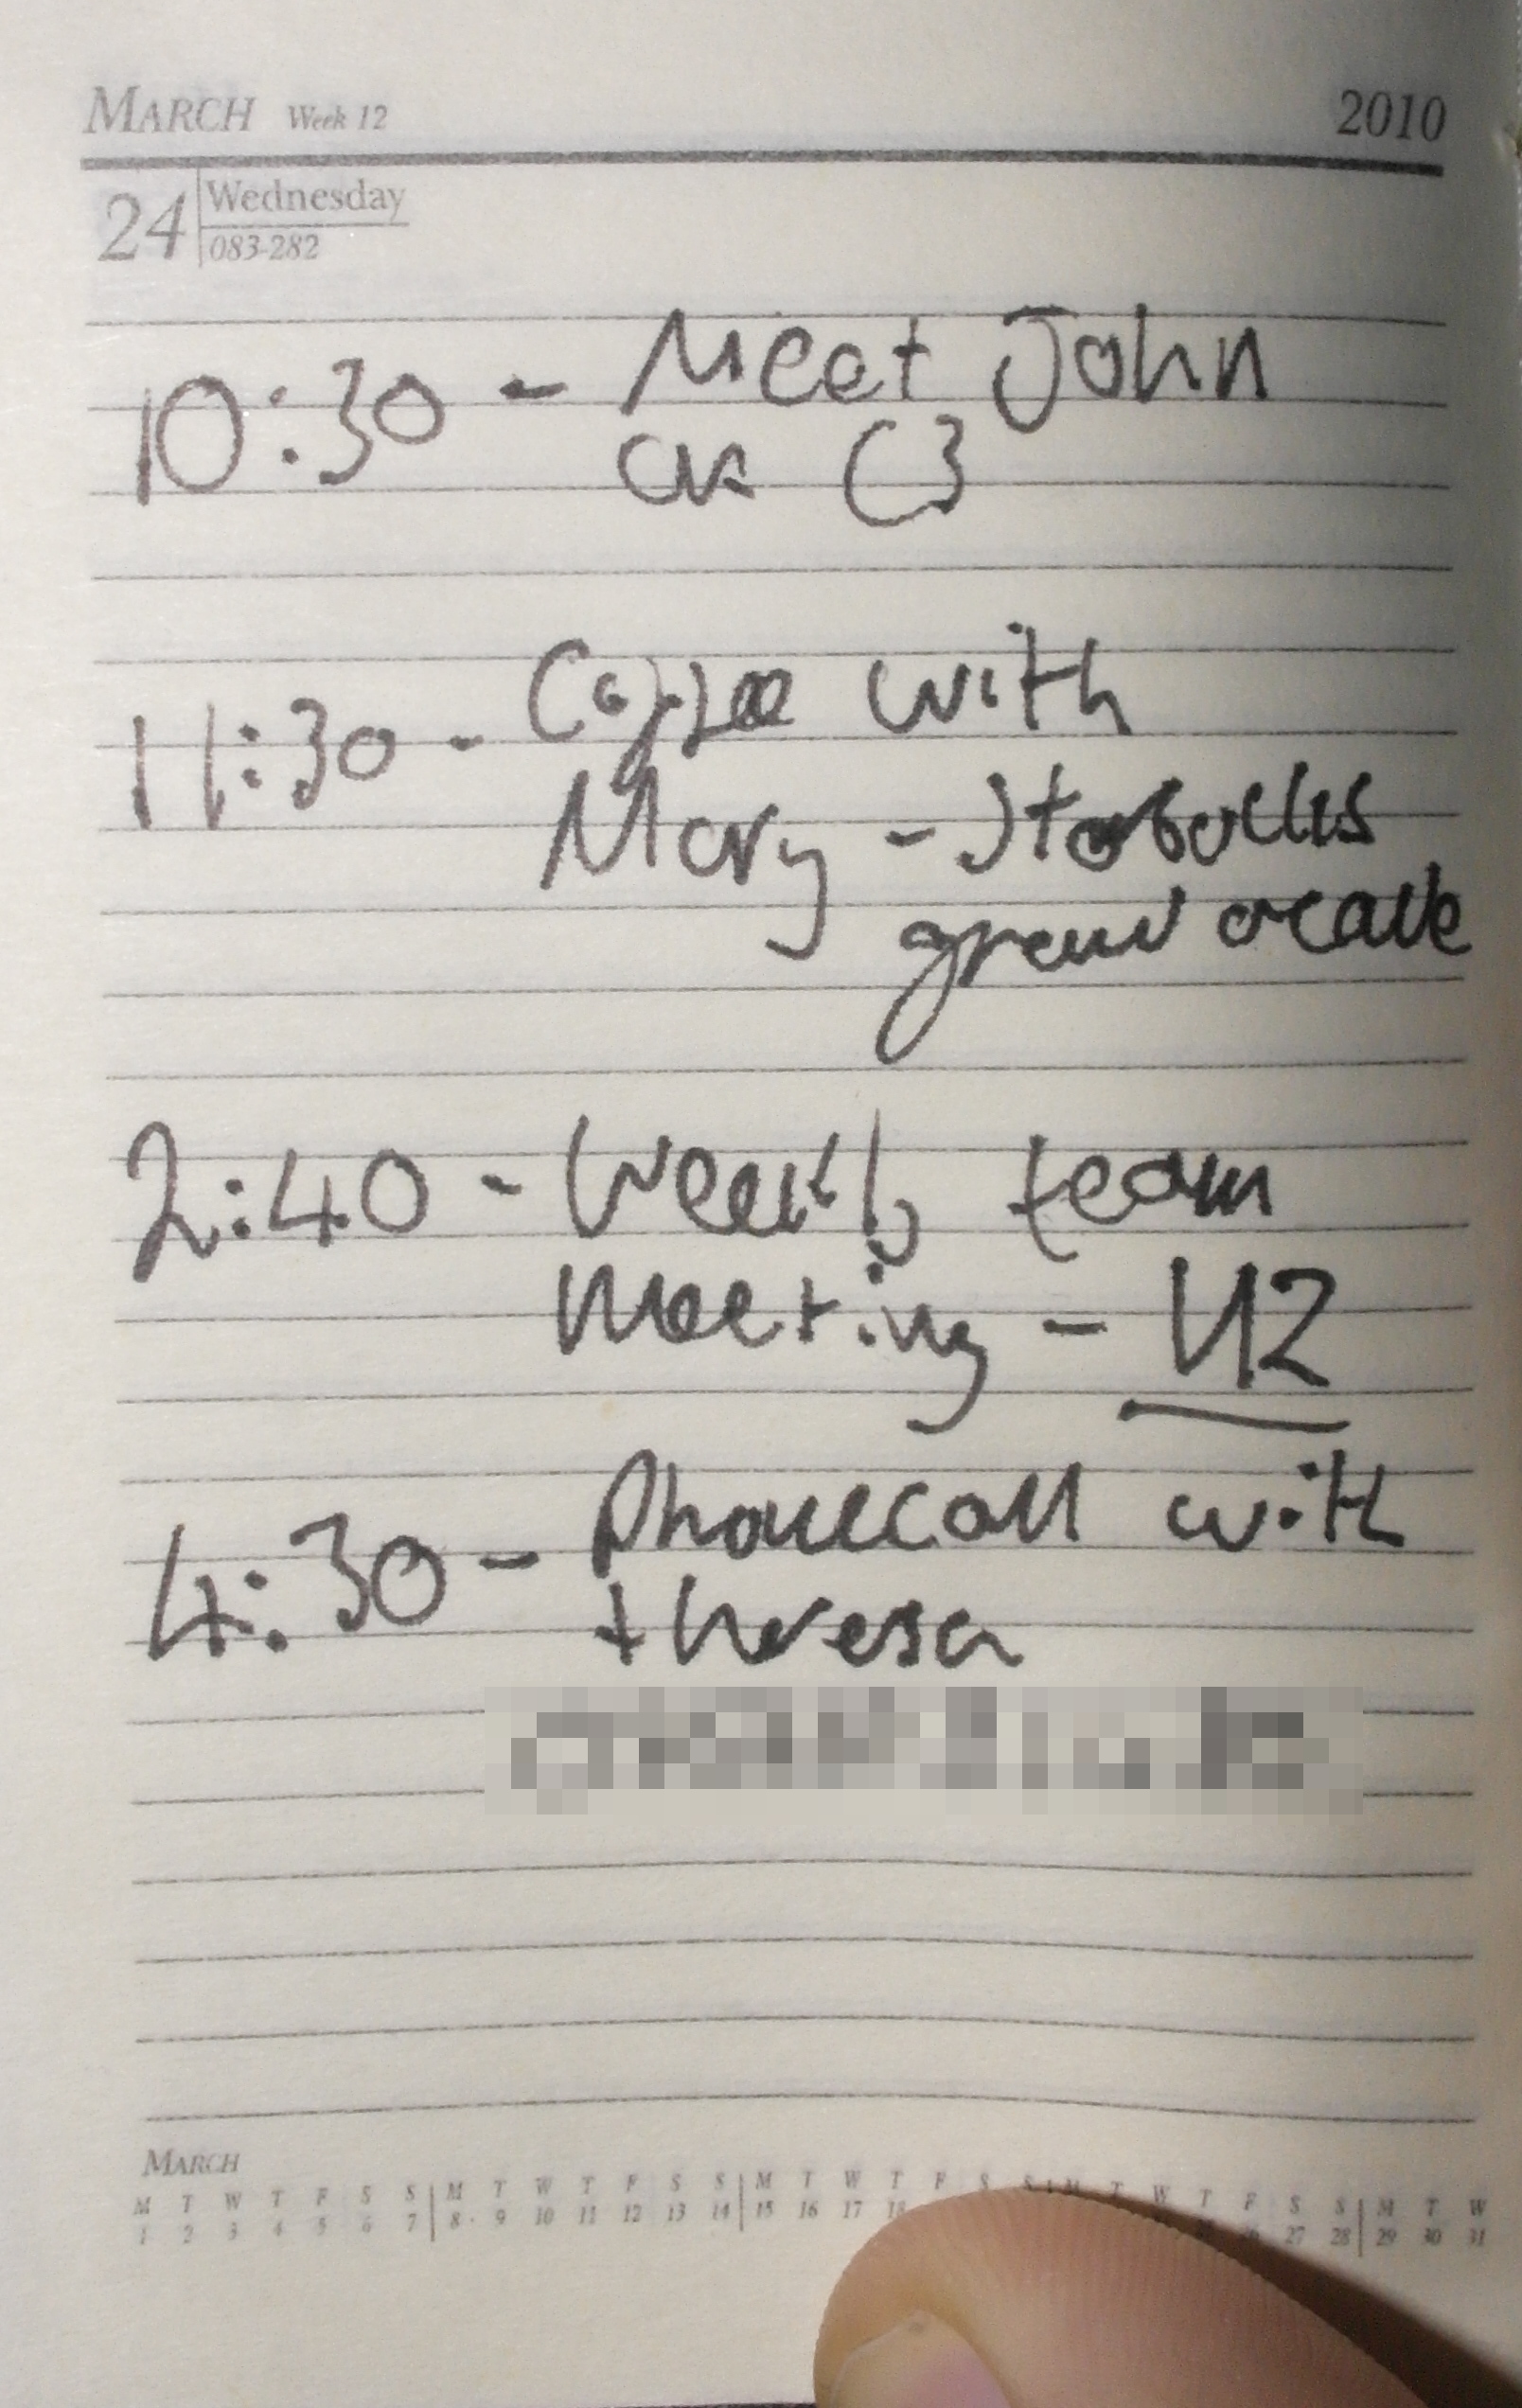 MARCH Week 12 2010
24 Wednesday
083-282
10:30 - Meet John
at C3
11:30 - Coffee with
Mary - Starbucks
grand arcade
2:40 - Weekly team
meeting - U2
4:30 - Phonecall with
theresa
MARCH
M T W T F S S M T W T F S S M T W T F S S M T W T F S S M T W
1 2 3 4 5 6 7 8 9 10 11 12 13 14 15 16 17 18 26 27 28 29 30 31